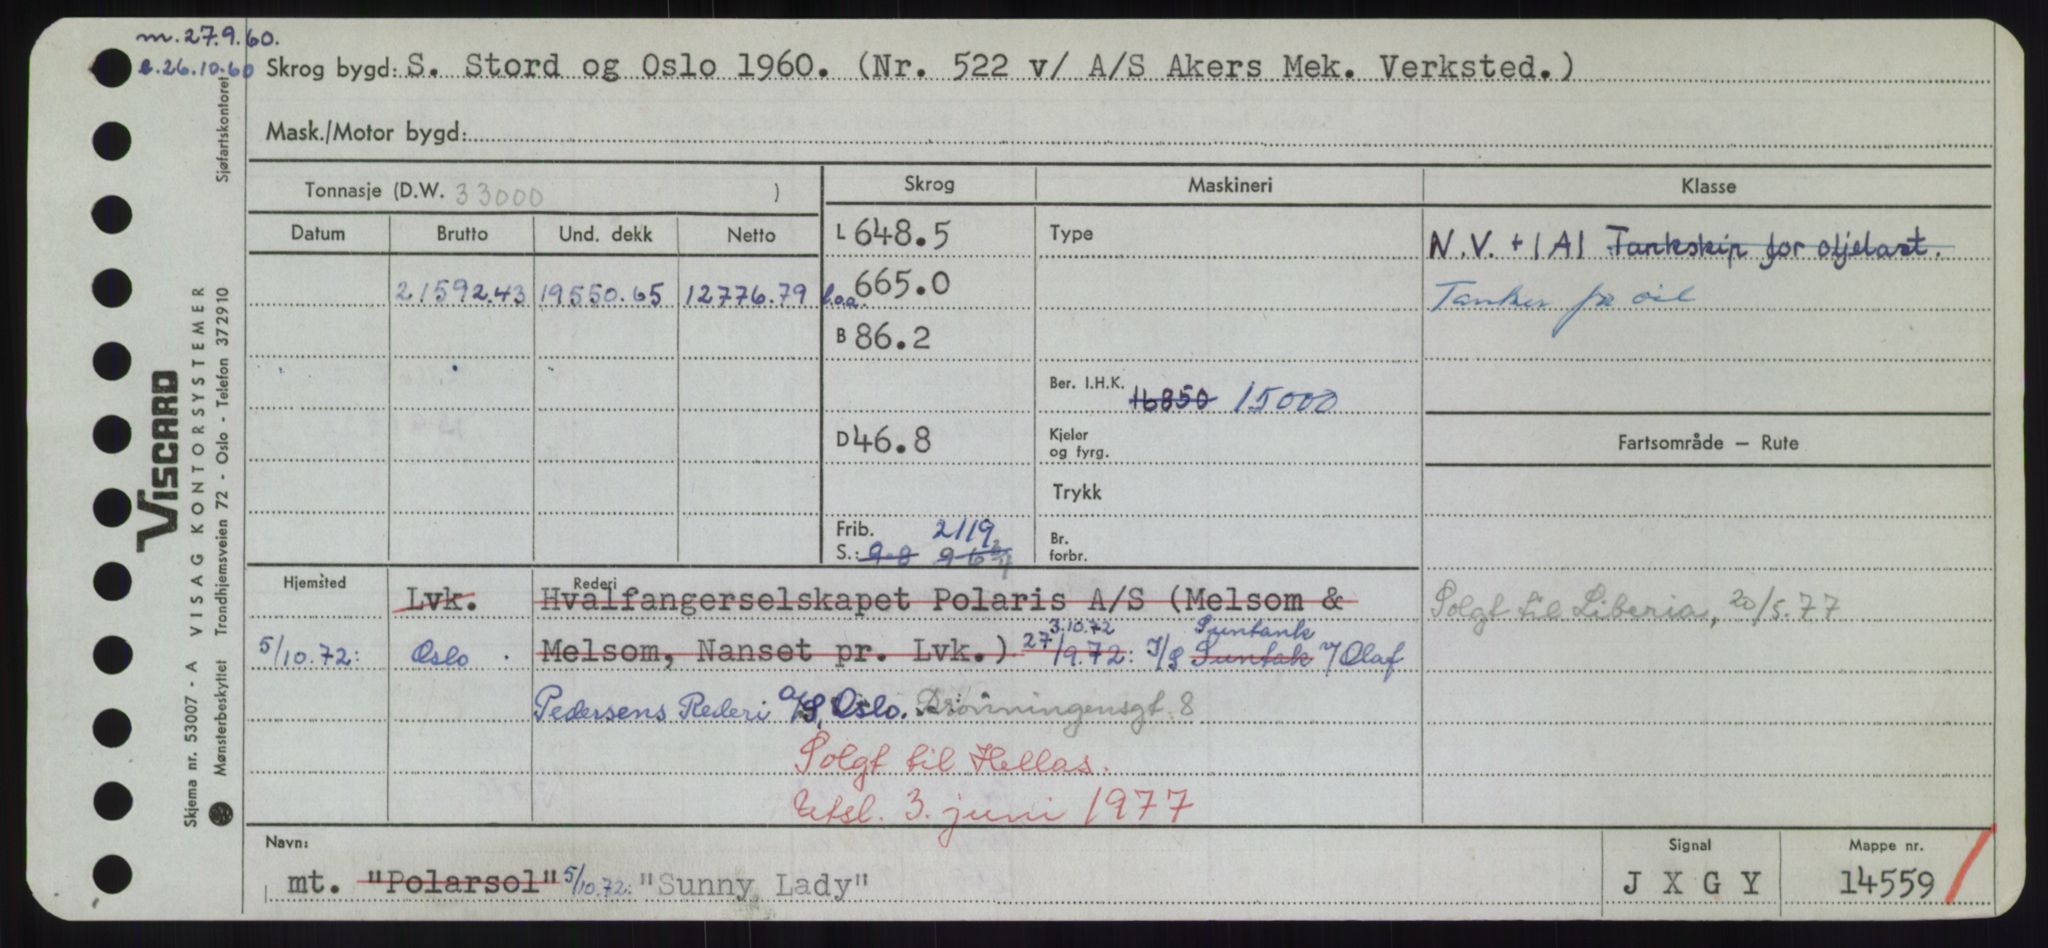 m.27.9.60.
e.26.10.60
Skrog bygd: S. Stord og Oslo 1960. (Nr. 522 v/ A/S Akers Mek. Verksted.)
Mask./Motor bygd:
Tonnasje (D.W. 33000 )
Skrog
Maskineri
Klasse
Datum
Brutto
Und. dekk
Netto
21592.43
19550.65
12776.79
L 648.5
l.o.a. 665.0
B 86.2
D 46.8
Frib. 2119
S.: 9-8 9-6 3/4
Type
Ber. I.H.K. 16850 15000
Kjeler
og fyrg.
Trykk
Br.
forbr.
N.V. + 1A1 Tankskip for oljelast.
Tanker for oil
Fartsområde — Rute
Solgt til Liberia, 20/5.77
Hjemsted
Rederi
Lvk.
Hvalfangerselskapet Polaris A/S (Melsom &
3.10.72 Suntank
5/10.72: Oslo. Melsom, Nanset pr. Lvk.) 27/9.72: I/S Suntak v/ Olaf
Pedersens Rederi A/S, Oslo. Dronningensgt 8
Solgt til Hellas.
Utsl. 3. juni 1977
Navn:
mt. "Polarsol" 5/10.72: "Sunny Lady"
Signal
J X G Y
Mappe nr.
14559
VISCARD
Skjema nr. 53007 - A VISAG KONTORSYSTEMER
Mønsterbeskyttet Trondhjemsveien 72 - Oslo - Telefon 37 29 10 Sjøfartskontoret